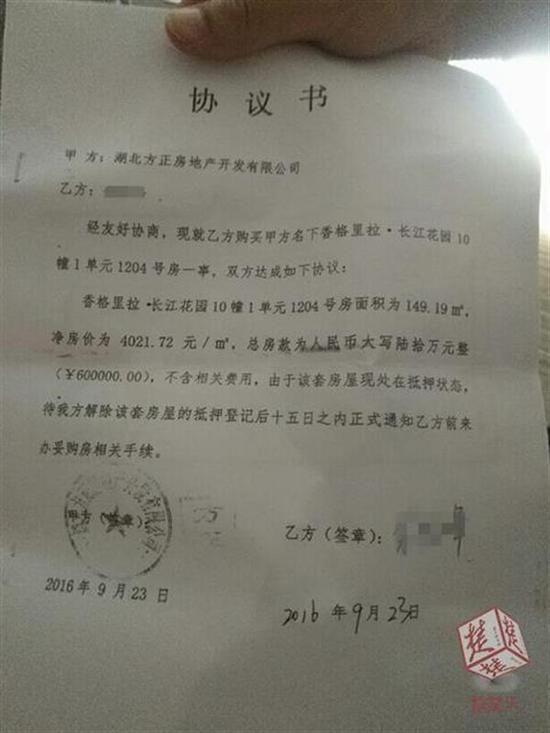 协议书
甲 方：湖北方正房地产开发有限公司
乙方：
经友好协商，现就乙方购买甲方名下香格里拉·长江花园10
幢1单元1204号房一事，双方达成如下协议：
香格里拉·长江花园10幢1单元1204号房面积为149.19㎡，
净房价为 4021.72 元/㎡，总房款为人民币大写陆拾万元整
（￥600000.00），不含相关费用，由于该套房屋现处在抵押状态，
待我方解除该套房屋的抵押登记后十五日之内正式通知乙方前来
办妥购房相关手续。
甲方（签章） 乙方（签章）：
2016年9月23日 2016年9月23日
楚
楚